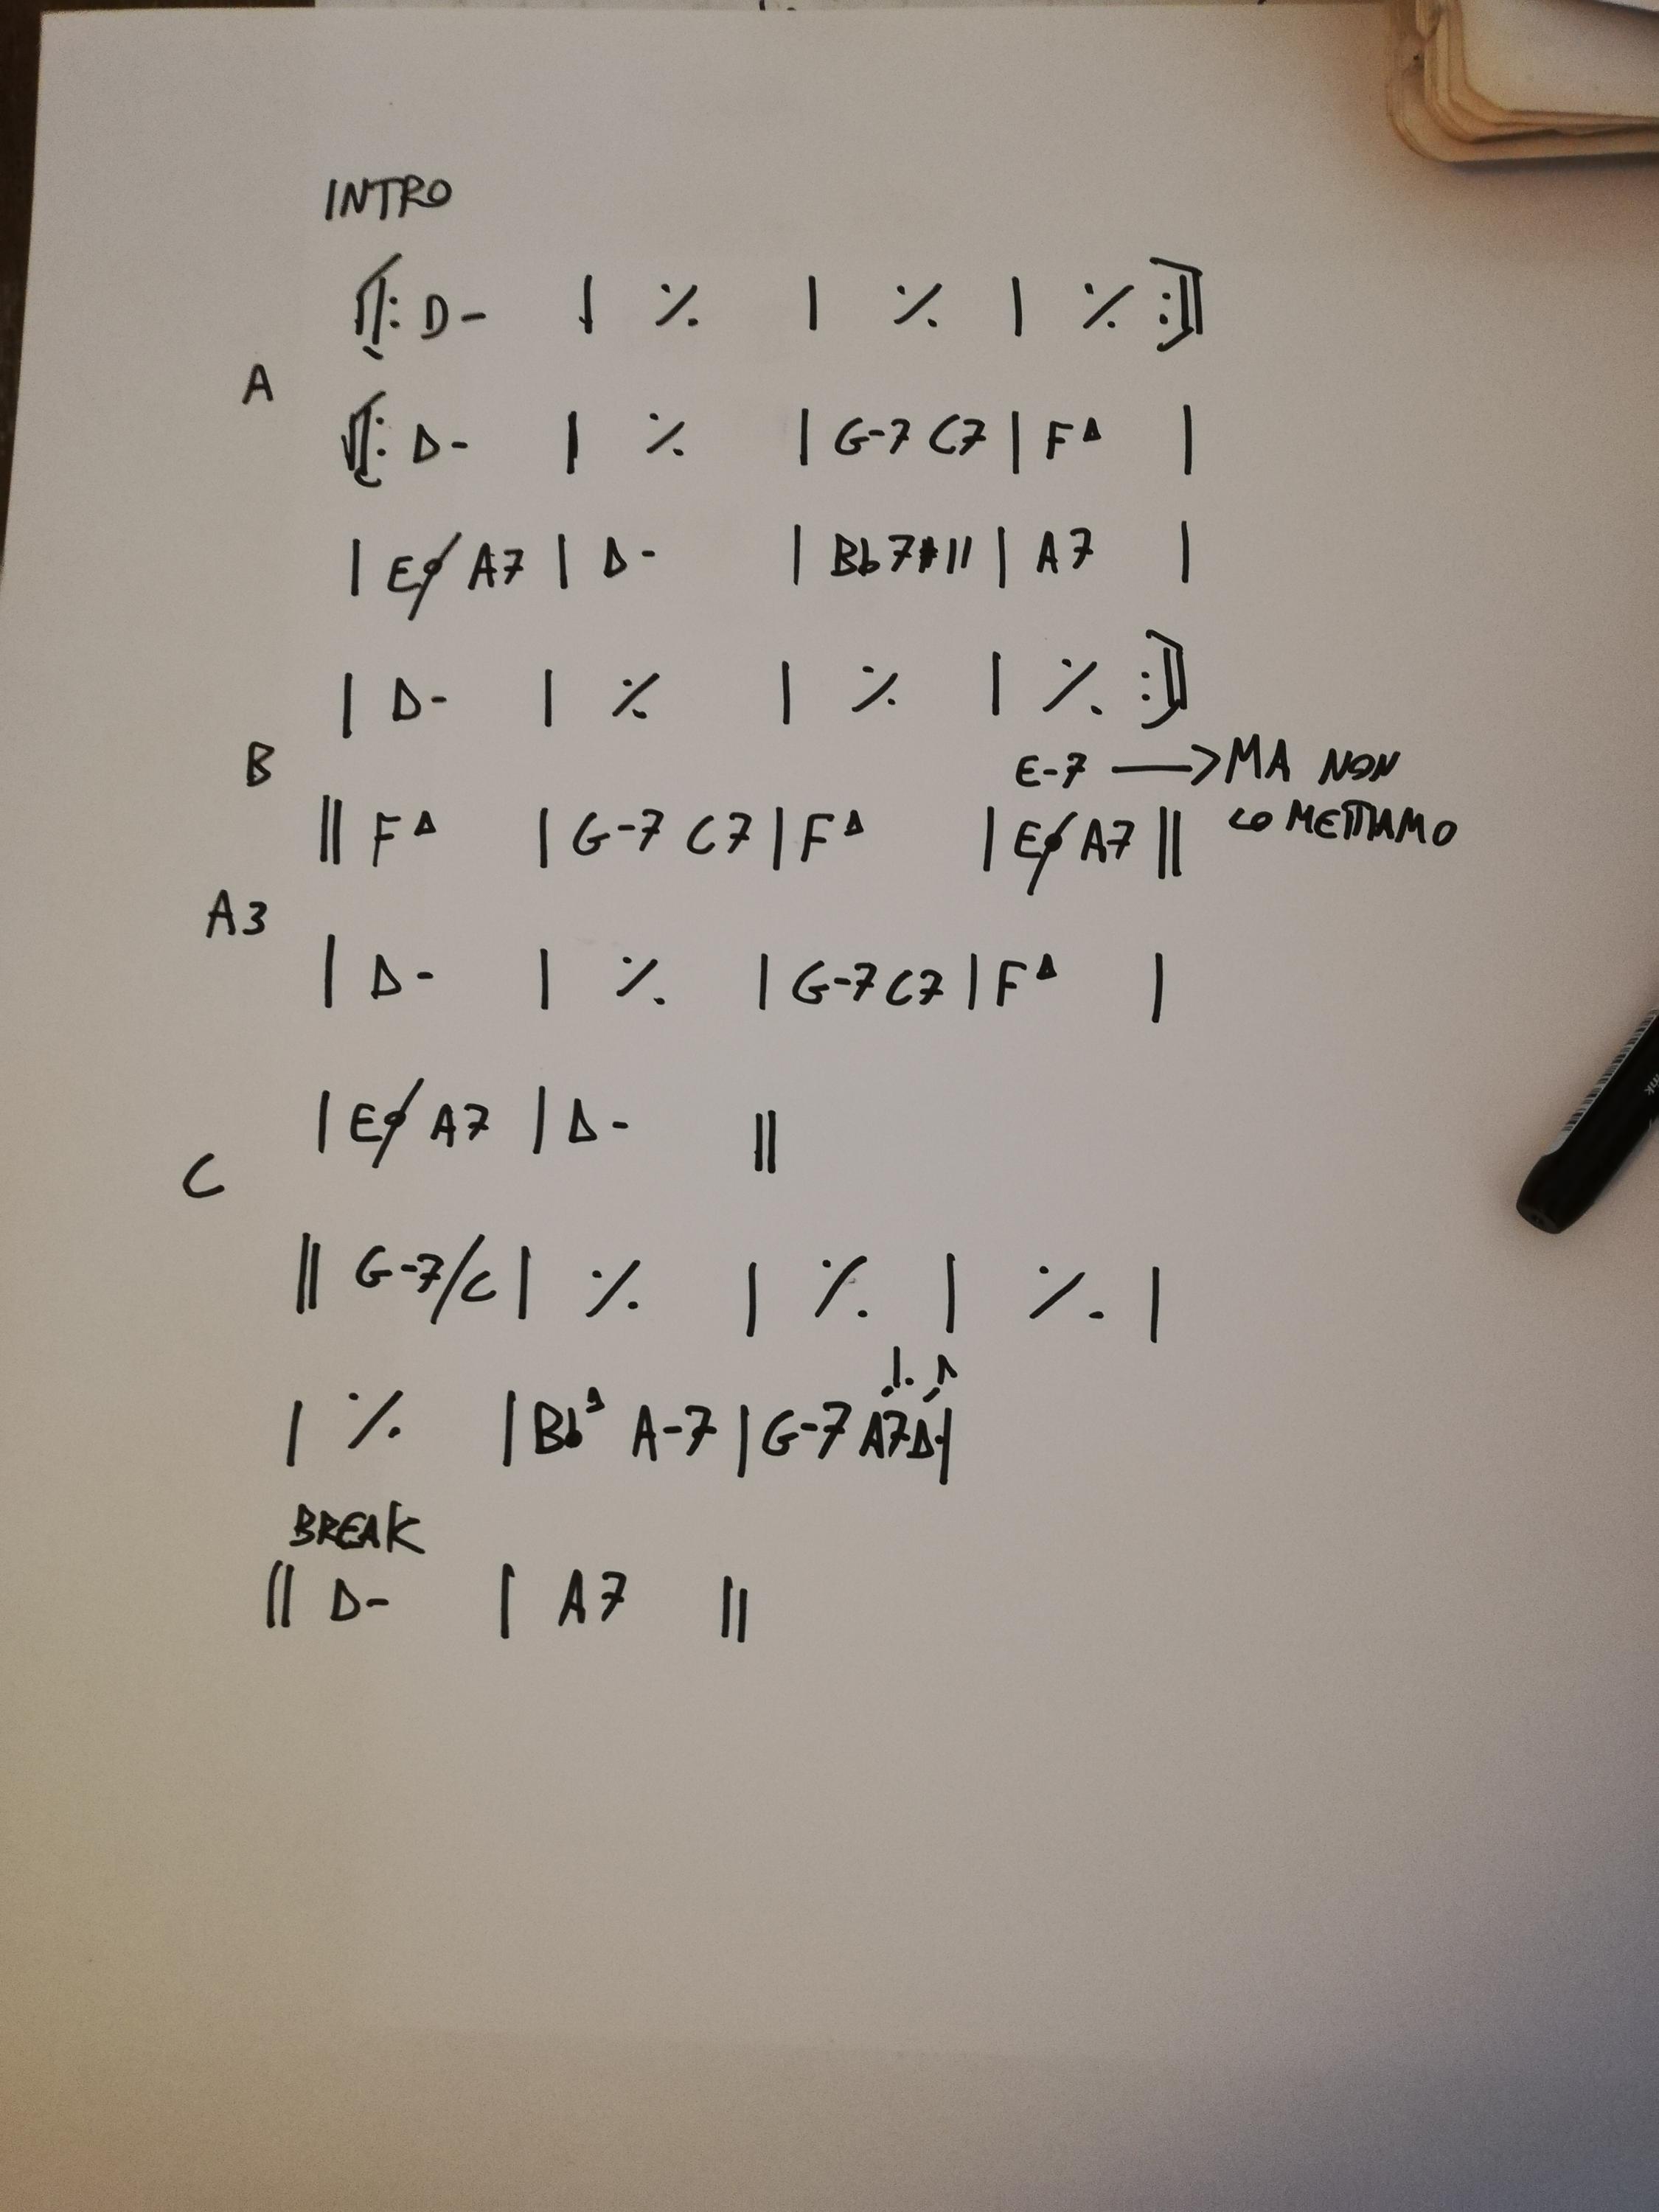 INTRO
‖: D- | % | % | % :‖
A
‖: D- | % | G-7 C7 | FΔ |
| Eø A7 | D- | Bb7#11 | A7 |
| D- | % | % | % :‖
E-7 → MA NON
LO METTIAMO
B
‖ FΔ | G-7 C7 | FΔ | Eø A7 ‖
A3
| D- | % | G-7 C7 | FΔ |
| Eø A7 | D- ‖
C
‖ G-7/C | % | % | % |
| % | BbΔ A-7 | G-7 A7 D- |
BREAK
‖ D- | A7 ‖